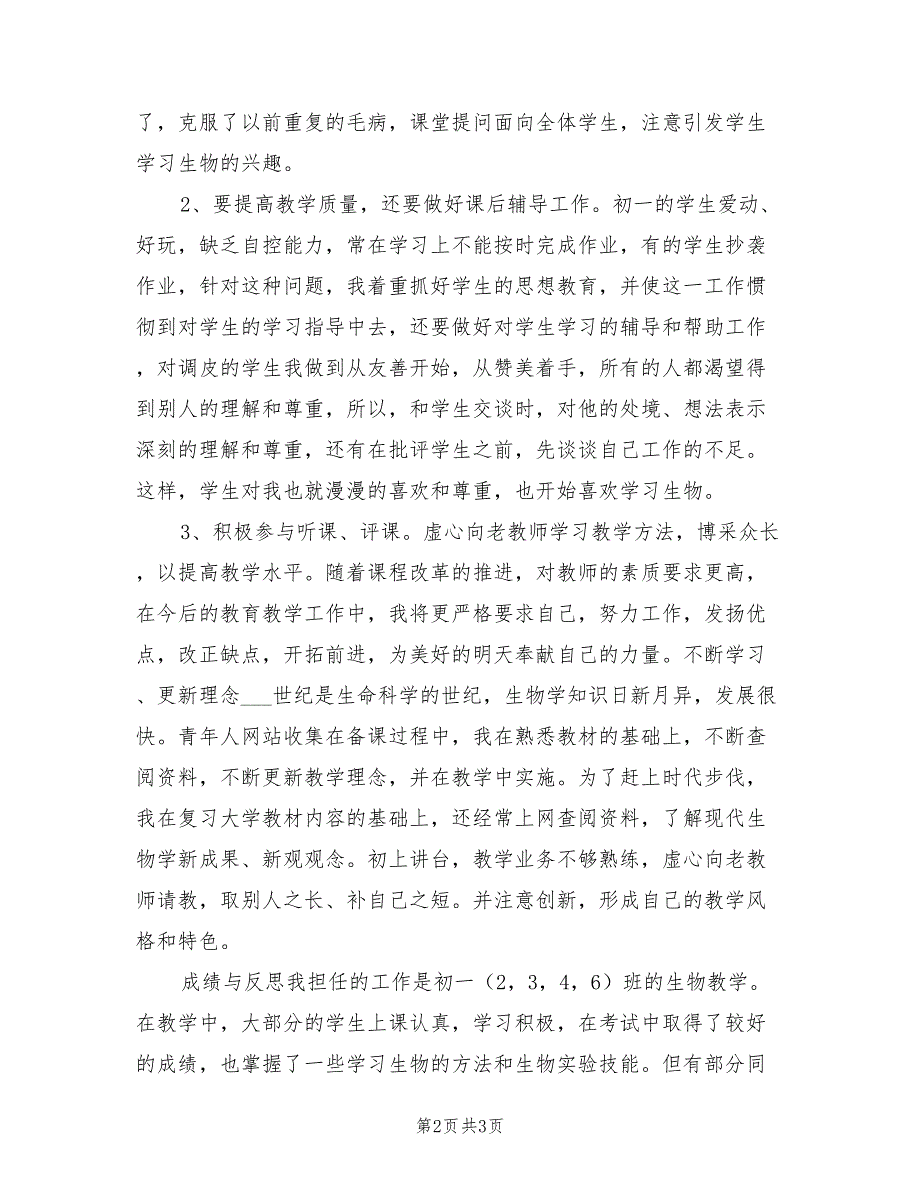 了，克服了以前重复的毛病，课堂提问面向全体学生，注意引发学生
学习生物的兴趣。
2、要提高教学质量，还要做好课后辅导工作。初一的学生爱动、
好玩，缺乏自控能力，常在学习上不能按时完成作业，有的学生抄袭
作业，针对这种问题，我着重抓好学生的思想教育，并使这一工作惯
彻到对学生的学习指导中去，还要做好对学生学习的辅导和帮助工作
，对调皮的学生我做到从友善开始，从赞美着手，所有的人都渴望得
到别人的理解和尊重，所以，和学生交谈时，对他的处境、想法表示
深刻的理解和尊重，还有在批评学生之前，先谈谈自己工作的不足。
这样，学生对我也就漫漫的喜欢和尊重，也开始喜欢学习生物。
3、积极参与听课、评课。虚心向老教师学习教学方法，博采众长
，以提高教学水平。随着课程改革的推进，对教师的素质要求更高，
在今后的教育教学工作中，我将更严格要求自己，努力工作，发扬优
点，改正缺点，开拓前进，为美好的明天奉献自己的力量。不断学习
、更新理念___世纪是生命科学的世纪，生物学知识日新月异，发展很
快。青年人网站收集在备课过程中，我在熟悉教材的基础上，不断查
阅资料，不断更新教学理念，并在教学中实施。为了赶上时代步伐，
我在复习大学教材内容的基础上，还经常上网查阅资料，了解现代生
物学新成果、新观观念。初上讲台，教学业务不够熟练，虚心向老教
师请教，取别人之长、补自己之短。并注意创新，形成自己的教学风
格和特色。
成绩与反思我担任的工作是初一（2，3，4，6）班的生物教学。
在教学中，大部分的学生上课认真，学习积极，在考试中取得了较好
的成绩，也掌握了一些学习生物的方法和生物实验技能。但有部分同
第2页 共3页